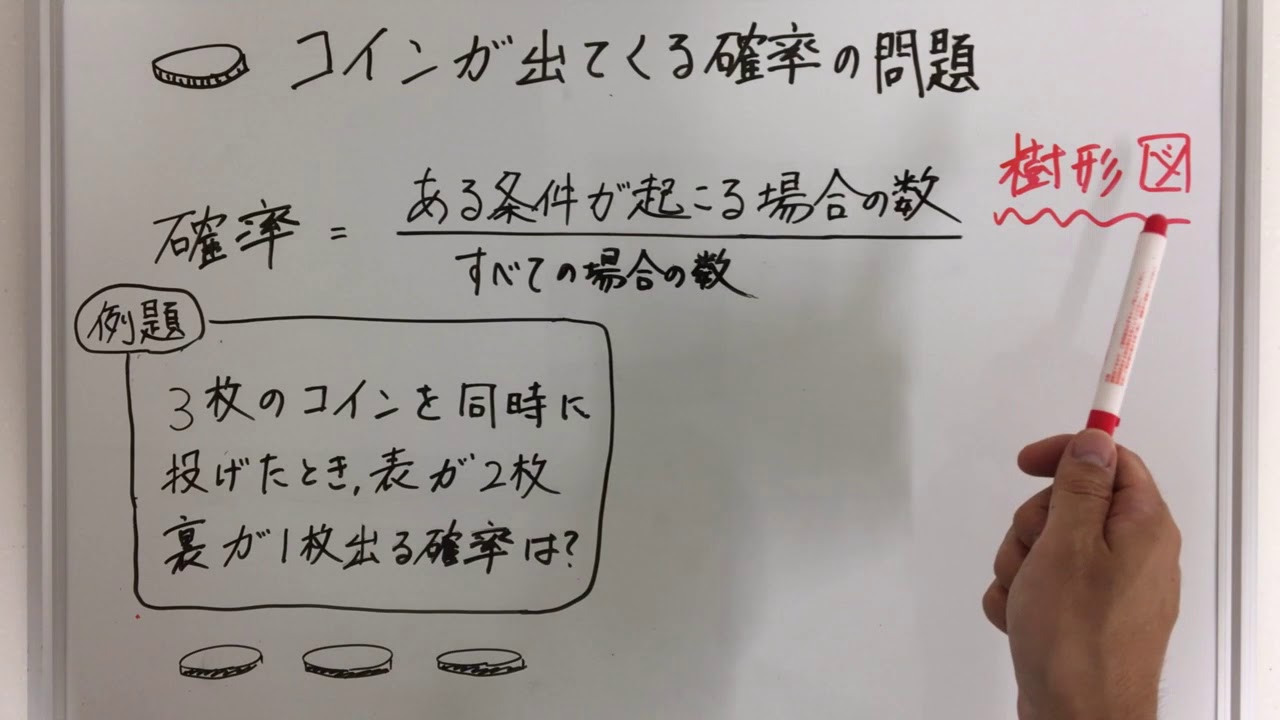 コインが出てくる確率の問題
樹形図
確率 = ある条件が起こる場合の数
すべての場合の数
例題
3枚のコインを同時に
投げたとき,表が2枚
裏が1枚出る確率は?